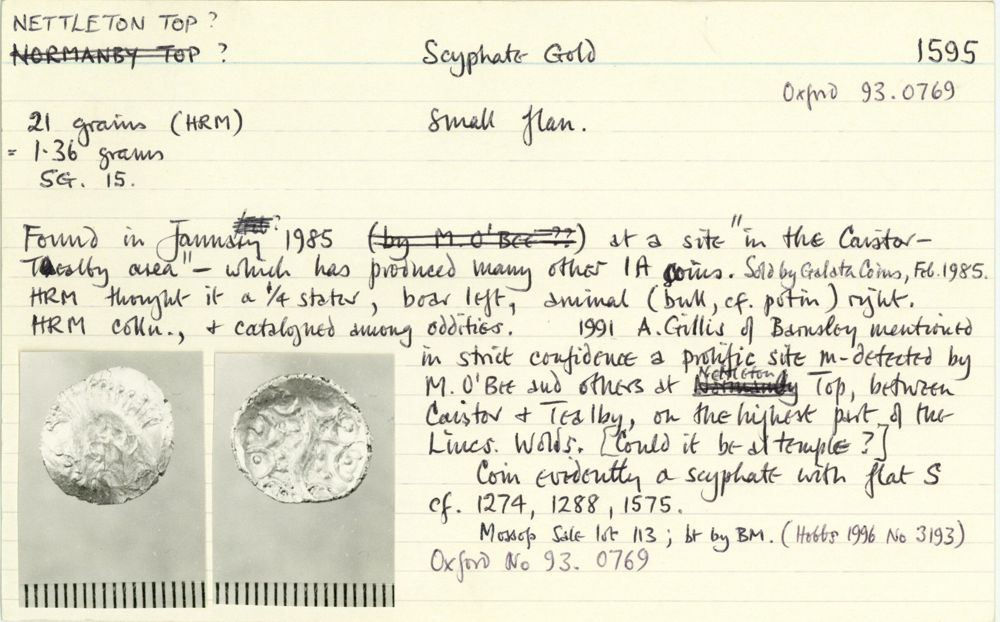 NETTLETON TOP ?
NORMANBY TOP ?
Scyphate Gold
1595
Oxford 93.0769
21 grains (HRM)
= 1.36 grams
SG. 15.
Small flan.
Found in January ? 1985 (by M. O'BEE ??) at a site "in the Caistor-
Tealby area" - which has produced many other IA coins. Sold by Galata Coins, Feb. 1985.
HRM thought it a 1/4 stater, boar left, animal (bull, cf. potin) right.
HRM colln., & catalogued among oddities. 1991 A. Gillis of Barnsley mentioned
in strict confidence a prolific site m-detected by
M. O'BEE and others at Normanby Nettleton Top, between
Caistor & Tealby, on the highest part of the
Lincs. Wolds. [Could it be a temple ?]
Coin evidently a scyphate with flat S
cf. 1274, 1288, 1575.
Mossop Sale lot 113 ; bt by BM. (Hobbs 1996 No 3193)
Oxford No 93. 0769